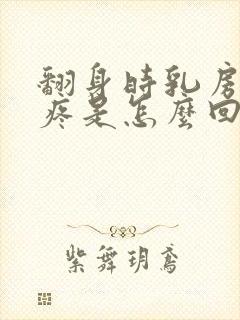 翻身時乳房
疼是怎麼回
紫舞玥鸢